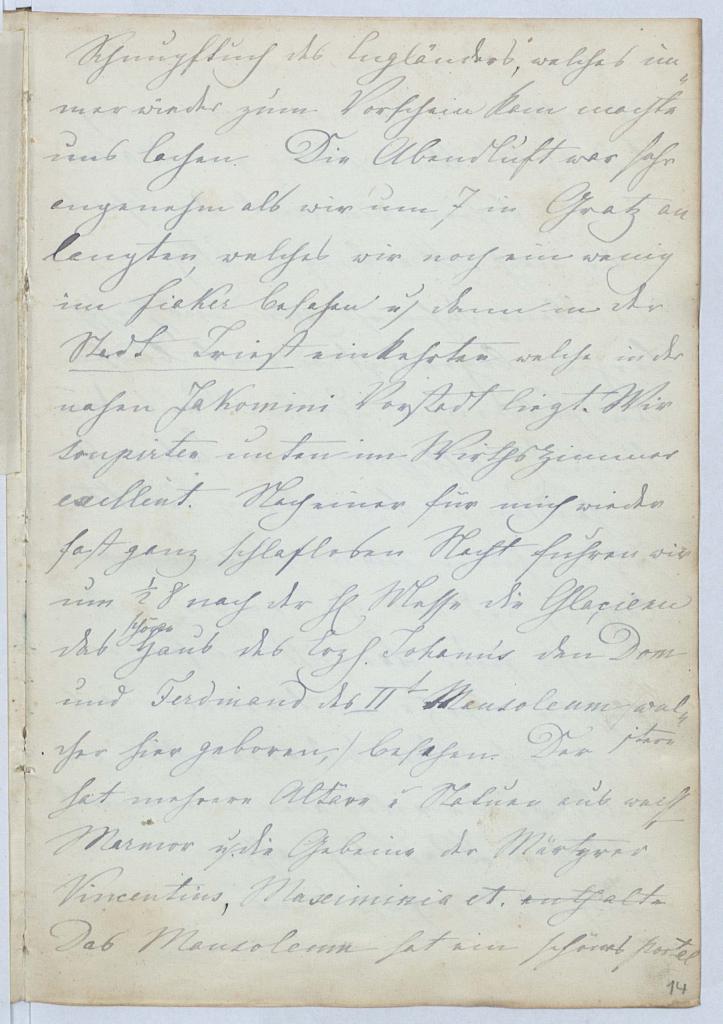 Schnupftuch des Engländers, welches im-
mer wieder zum Vorschein kam machte
uns lachen. Die Abendluft war sehr
angenehm als wir um 7 in Gratz an
langten, welches wir noch ein wenig
im fiaker besahen u/ dann in der
Stadt Triest einkehrten welche in der
nahen Jakomini Vorstadt liegt. Wir
soupirten unten im Wirthszimmer
excellent. Nach einer für mich wieder
fast ganz schlaflosen Nacht fuhren wir
um ½ 8 nach der hl Messe die Glacieen
schöne
das Haus des Erzh. Johanns den Dom
und Ferdinand des IIt Mausoleum wel-
cher hier geboren,) besehen. Der
hat mehrere Altäre u Statuen aus weiß
Marmor u. die Gebeine der Märtyrer
Vincentius, Maximinia et. enthalte
Das Mausoleum hat ein schönes Portal
14